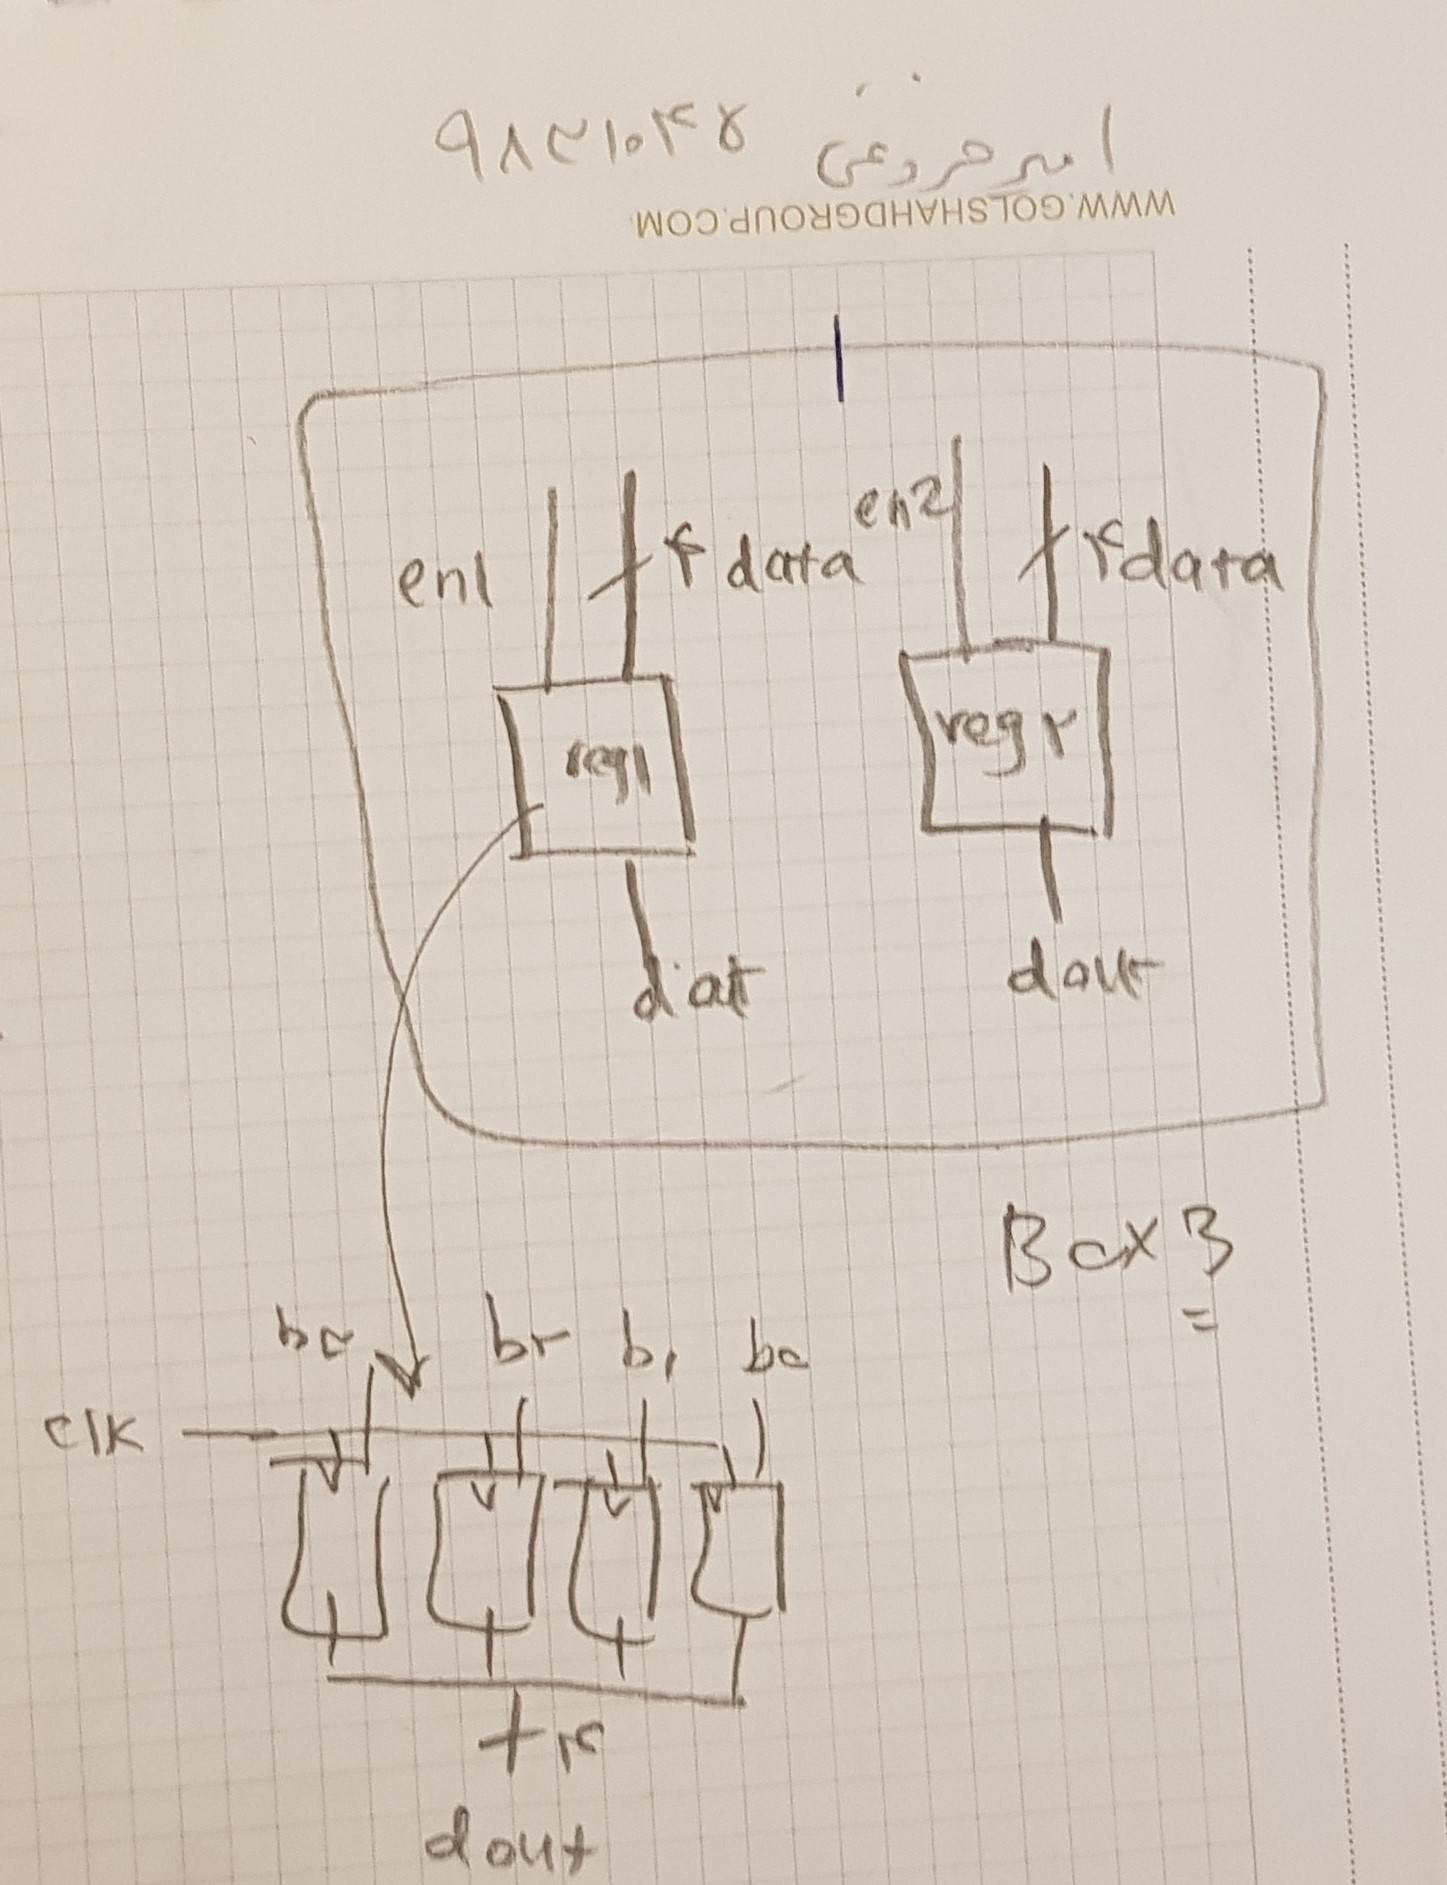 امیر فروغی ۹۸۲۱۰۴۵
WWW.GOLSHAHDGROUP.COM
en1 ۴ data en2 ۴ data
reg۱ reg۲
dout dout
Box 3
b۳ b۲ b۱ b۰
clk
۴
dout